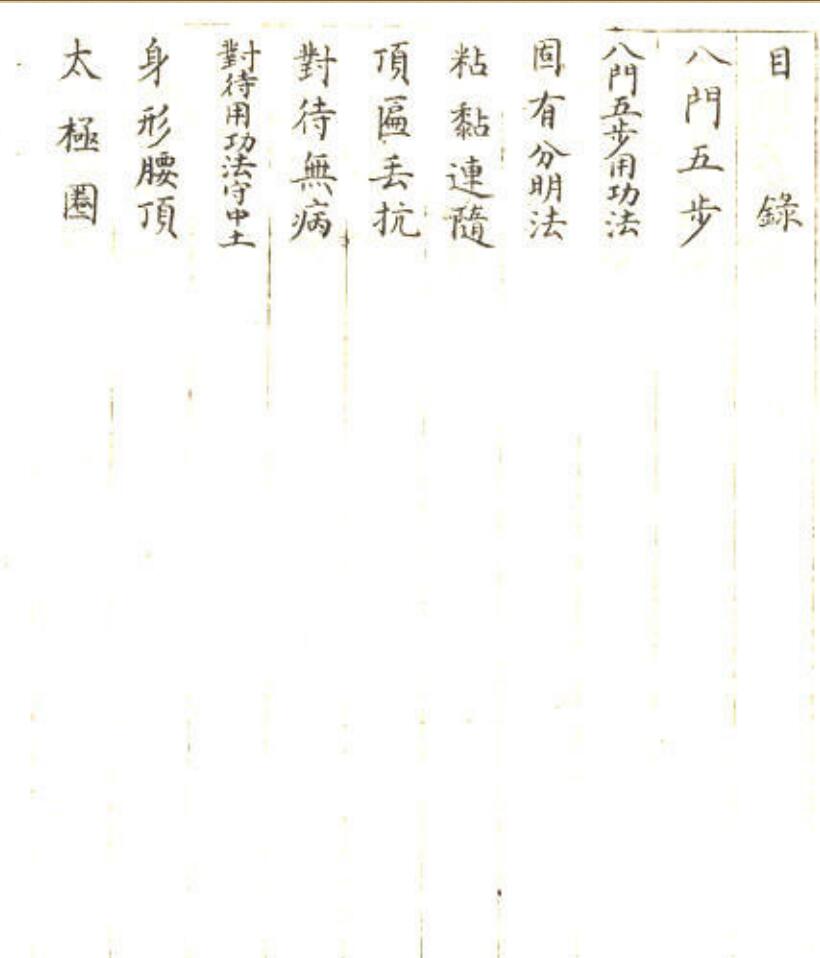 目錄
八門五步
八門五步用功法
固有分明法
粘黏連隨
頂匾丟抗
對待無病
對待用功法守中土
身形腰頂
太極圈